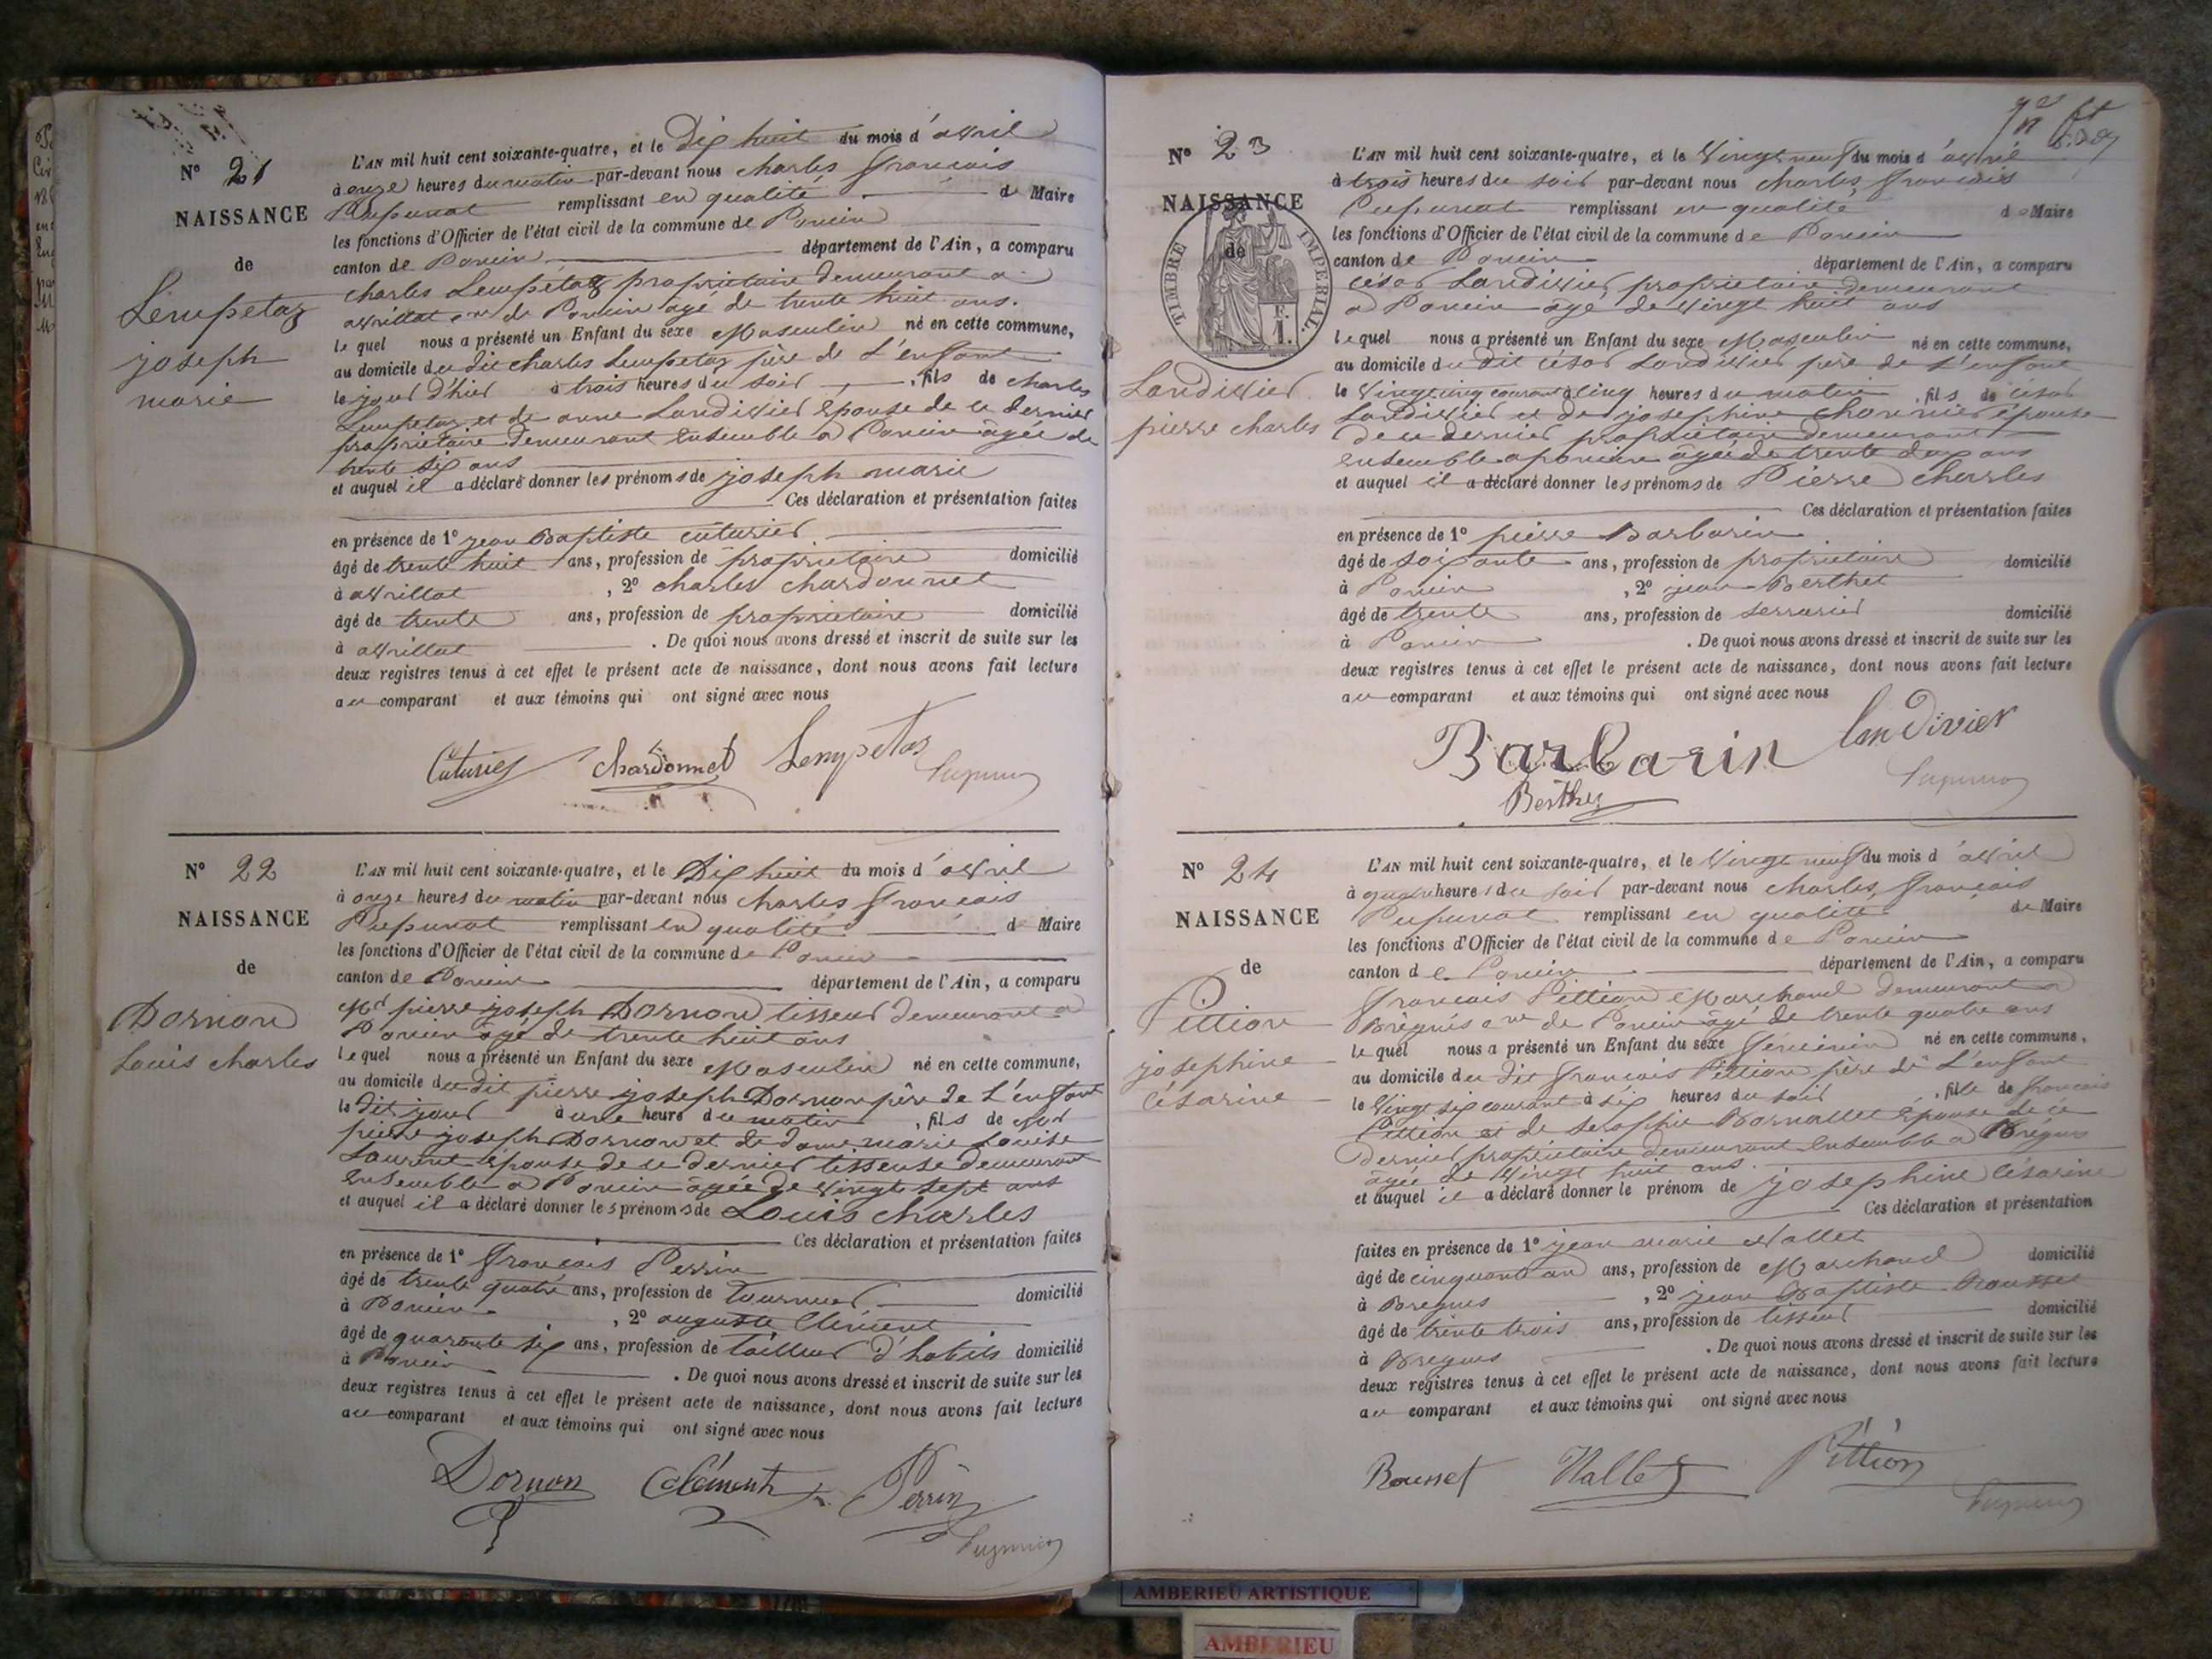 N° 21
NAISSANCE
de
Lempetaz
joseph
marie
L'AN mil huit cent soixante-quatre, et le Dix huit du mois d'avril
à onze heures du matin par-devant nous charles françois
Pupunat remplissant en qualité de Maire
les fonctions d'Officier de l'état civil de la commune de Poncin
canton de Poncin département de l'Ain, a comparu
charles Lempétaz propriétaire demeurant a
avrillat cne de Poncin âgé de trente huit ans.
lequel nous a présenté un Enfant du sexe Masculin né en cette commune,
au domicile du dit charles Lempetaz père de L'enfant
le jour d'hier à trois heures du soir, fils de charles
Lempetaz et de anne Landivier épouse de ce dernier
propriétaire demeurant ensemble a Poncin âgée de
trente six ans
et auquel il a déclaré donner les prénoms de joseph marie
Ces déclaration et présentation faites
en présence de 1° jean Baptiste cuturier
âgé de trente huit ans, profession de propriétaire domicilié
à avrillat, 2° charles chardonnet
âgé de trente ans, profession de propriétaire domicilié
à avrillat. De quoi nous avons dressé et inscrit de suite sur les
deux registres tenus à cet effet le présent acte de naissance, dont nous avons fait lecture
au comparant et aux témoins qui ont signé avec nous
Cuturier Chardonnet Lempetaz
N° 22
NAISSANCE
de
Dornon
Louis charles
L'AN mil huit cent soixante-quatre, et le Dix huit du mois d'avril
à onze heures du matin par-devant nous charles françois
Pupunat remplissant en qualité de Maire
les fonctions d'Officier de l'état civil de la commune de Poncin
canton de Poncin département de l'Ain, a comparu
pierre joseph Dornon tisseur demeurant a
Poncin âgé de trente huit ans
lequel nous a présenté un Enfant du sexe Masculin né en cette commune,
au domicile du dit pierre joseph Dornon père de L'enfant
le dit jour à une heure du matin, fils de
pierre joseph Dornon et de dame marie Louise
Laurent épouse de ce dernier tisseuse demeurant
ensemble a Poncin âgée de vingt sept ans
et auquel il a déclaré donner les prénoms de Louis charles
Ces déclaration et présentation faites
en présence de 1° françois Perrin
âgé de trente quatre ans, profession de tourneur domicilié
à Poncin, 2° auguste Clément
âgé de quarante six ans, profession de tailleur d'habits domicilié
à Poncin. De quoi nous avons dressé et inscrit de suite sur les
deux registres tenus à cet effet le présent acte de naissance, dont nous avons fait lecture
au comparant et aux témoins qui ont signé avec nous
Dornon Clément Perrin
N° 23
NAISSANCE
de
TIMBRE IMPÉRIAL
F.
1.
Landivier
pierre charles
L'AN mil huit cent soixante-quatre, et le Vingt neuf du mois d'avril
à trois heures du soir par-devant nous charles françois
Pupunat remplissant en qualité de Maire
les fonctions d'Officier de l'état civil de la commune de Poncin
canton de Poncin département de l'Ain, a comparu
césar Landivier propriétaire demeurant
a Poncin âgé de vingt huit ans
lequel nous a présenté un Enfant du sexe Masculin né en cette commune,
au domicile du dit césar Landivier père de L'enfant
le Vingt cinq courant à cinq heures du matin, fils de césar
Landivier et de josephine épouse
de ce dernier propriétaire demeurant
ensemble a poncin âgée de trente deux ans
et auquel il a déclaré donner les prénoms de Pierre charles
Ces déclaration et présentation faites
en présence de 1° pierre Barbarin
âgé de soixante ans, profession de propriétaire domicilié
à Poncin, 2° jean Berthet
âgé de trente ans, profession de serrurier domicilié
à Poncin. De quoi nous avons dressé et inscrit de suite sur les
deux registres tenus à cet effet le présent acte de naissance, dont nous avons fait lecture
au comparant et aux témoins qui ont signé avec nous
Barbarin Landivier
Berthet
N° 24
NAISSANCE
de
Pittion
josephine
césarine
L'AN mil huit cent soixante-quatre, et le Vingt neuf du mois d'avril
à quatre heures du soir par-devant nous charles françois
Pupunat remplissant en qualité de Maire
les fonctions d'Officier de l'état civil de la commune de Poncin
canton de Poncin département de l'Ain, a comparu
françois Pittion Marchand demeurant a
Brégnes cne de Poncin âgé de trente quatre ans
lequel nous a présenté un Enfant du sexe féminin né en cette commune,
au domicile du dit françois Pittion père de L'enfant
le Vingt six courant à six heures du soir, fille de françois
Pittion et de Séraphie épouse de ce
dernier propriétaire demeurant ensemble a Brégnes
âgée de vingt huit ans.
et auquel il a déclaré donner le prénom de josephine césarine
Ces déclaration et présentation
faites en présence de 1° jean marie Nallet
âgé de cinquante un ans, profession de Marchand domicilié
à Bregnes, 2° jean Baptiste Rousset
âgé de trente trois ans, profession de tisseur domicilié
à Bregnes. De quoi nous avons dressé et inscrit de suite sur les
deux registres tenus à cet effet le présent acte de naissance, dont nous avons fait lecture
au comparant et aux témoins qui ont signé avec nous
Rousset Nallet Pittion
AMBERIEU ARTISTIQUE
AMBERIEU